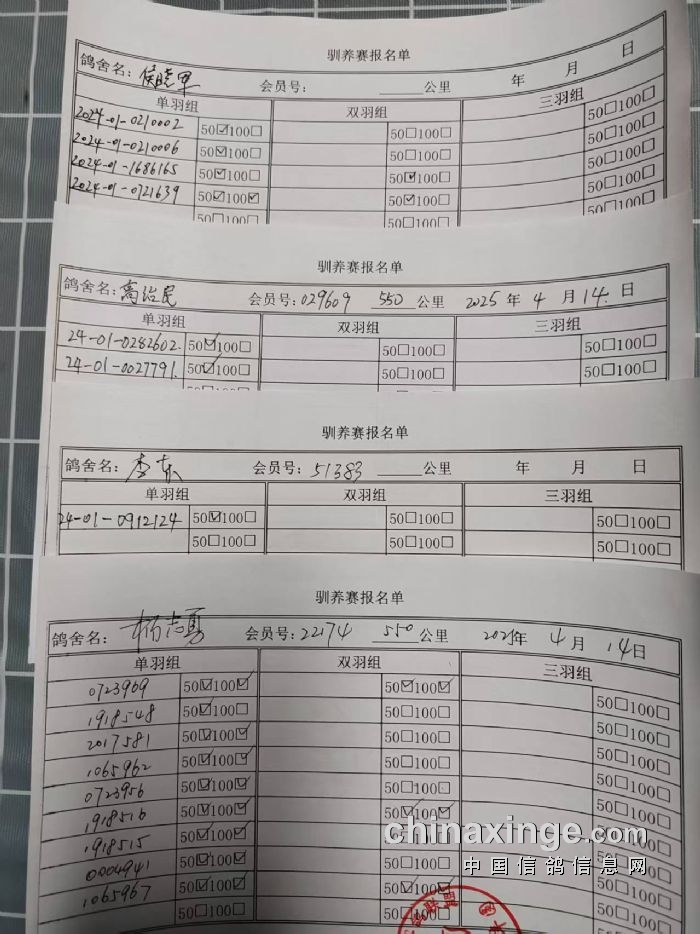 驯养赛报名单
鸽舍名: 侯晓军 会员号: ______公里 年 月 日
单羽组 双羽组 三羽组
2024-01-0210002 50☑100☐ 50☐100☐ 50☐100☐
2024-01-0210006 50☑100☐ 50☐100☐ 50☐100☐
2024-01-1686165 50☑100☐ 50☑100☐ 50☐100☐
2024-01-0721639 50☑100☑ 50☑100☐ 50☐100☐
50☐100☐ 50☐100☐ 50☐100☐
驯养赛报名单
鸽舍名: 高治民 会员号: 029609 550公里 2025年 4月 14.日
单羽组 双羽组 三羽组
24-01-0282602. 50☑100☐ 50☐100☐ 50☐100☐
24-01-0027791. 50☑100☐ 50☐100☐ 50☐100☐
驯养赛报名单
鸽舍名: 李东 会员号: 51383 ______公里 年 月 日
单羽组 双羽组 三羽组
24-01-0912124 50☑100☐ 50☐100☐ 50☐100☐
50☐100☐ 50☐100☐ 50☐100☐
驯养赛报名单
鸽舍名: 杨志勇 会员号: 22174 550公里 2025年 4月 14日
单羽组 双羽组 三羽组
0723969 50☑100☑ 50☑100☑ 50☐100☐
1918548 50☑100☐ 50☐100☐ 50☐100☐
2017581 50☑100☑ 50☐100☐ 50☐100☐
1065962 50☑100☑ 50☐100☐ 50☐100☐
0723956 50☑100☑ 50☐100☐ 50☐100☐
1918516 50☑100☑ 50☑100☑ 50☐100☐
1918515 50☑100☑ 50☐100☐ 50☐100☐
0004941 50☑100☑ 50☐100☐ 50☐100☐
1065967 50☑100☑ 50☑100☑ 50☐100☐
50☐100☐ 50☐100☐ 50☐100☐
chinaxinge.com
中国信鸽信息网